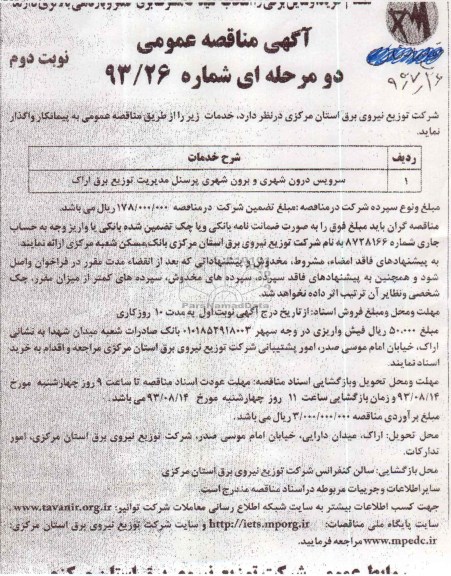 آگهی مناقصه عمومی
دو مرحله ای شماره ۹۳/۲۶
نوبت دوم
شرکت توزیع نیروی برق استان مرکزی درنظر دارد، خدمات زیر را از طریق مناقصه عمومی به پیمانکار واگذار
نماید.
ردیف شرح خدمات
۱ سرویس درون شهری و برون شهری پرسنل مدیریت توزیع برق اراک
مبلغ ونوع سپرده شرکت درمناقصه :مبلغ تضمین شرکت درمناقصه ۱۷۸/۰۰۰/۰۰۰ ریال می باشد.
مناقصه گران باید مبلغ فوق را به صورت ضمانت نامه بانکی ویا چک تضمین شده بانکی یا واریز وجه به حساب
جاری شماره ۸۷۲۸۱۶۶ به نام شرکت توزیع نیروی برق استان مرکزی بانک مسکن شعبه مرکزی ارائه نمایند.
به پیشنهادهای فاقد امضاء، مشروط، مخدوش و پیشنهاداتی که بعد از انقضاء مدت مقرر در فراخوان واصل
شود و همچنین به پیشنهادهای فاقد سپرده، سپرده های مخدوش، سپرده های کمتر از میزان مقرر، چک
شخصی ونظایر آن ترتیب اثر داده نخواهد شد.
مهلت ومحل ومبلغ فروش اسناد: از تاریخ درج آگهی نوبت اول به مدت ۱۰ روز کاری
مبلغ ۵۰.۰۰۰ ریال فیش واریزی در وجه سپهر ۰۱۰۱۸۵۴۹۱۸۰۰۳ بانک صادرات شعبه میدان شهدا به نشانی
اراک، خیابان امام موسی صدر، امور پشتیبانی شرکت توزیع نیروی برق استان مرکزی مراجعه و اقدام به خرید
اسناد نمایند.
مهلت ومحل تحویل وبازگشایی اسناد مناقصه: مهلت عودت اسناد مناقصه تا ساعت ۹ روز چهارشنبه مورخ
۹۳/۰۸/۱۴ و زمان بازگشایی ساعت ۱۱ روز چهارشنبه مورخ ۹۳/۰۸/۱۴ می باشد.
مبلغ برآوردی مناقصه ۳/۰۰۰/۰۰۰/۰۰۰ ریال می باشد.
محل تحویل: اراک، میدان دارایی، خیابان امام موسی صدر، شرکت توزیع نیروی برق استان مرکزی، امور
تدارکات.
محل بازگشایی: سالن کنفرانس شرکت توزیع نیروی برق استان مرکزی
سایر اطلاعات وجزییات مربوطه دراسناد مناقصه مندرج است.
جهت کسب اطلاعات بیشتر به سایت شبکه اطلاع رسانی معاملات شرکت توانیر: www.tavanir.org.ir
سایت پایگاه ملی مناقصات: http://iets.mporg.ir و سایت شرکت توزیع نیروی برق استان مرکزی:
www.mpedc.ir مراجعه فرمایید.
روابط عمومی شرکت توزیع نیروی برق استان مرکزی